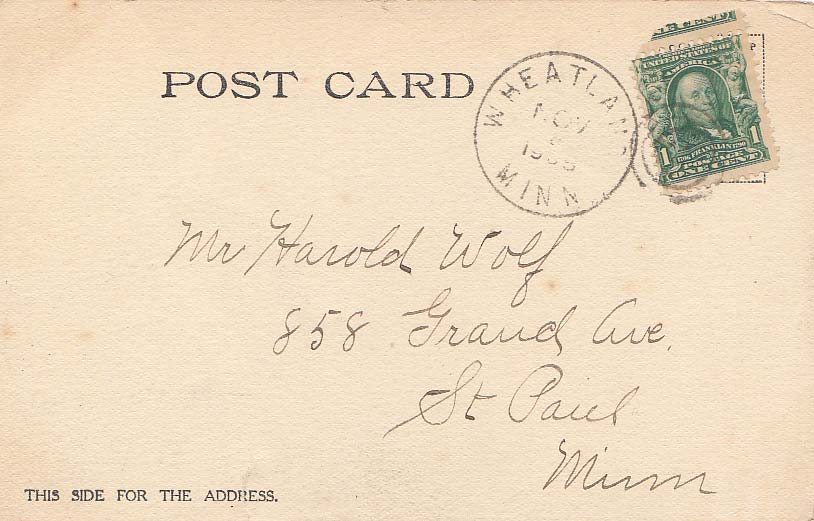 POST CARD
WHEATLAND
NOV
MINN
UNITED STATES OF
AMERICA
1706 FRANKLIN 1790
1 POSTAGE 1
ONE CENT
Mr Harold Wolf
858 Grand Ave.
St Paul
Minn
THIS SIDE FOR THE ADDRESS.